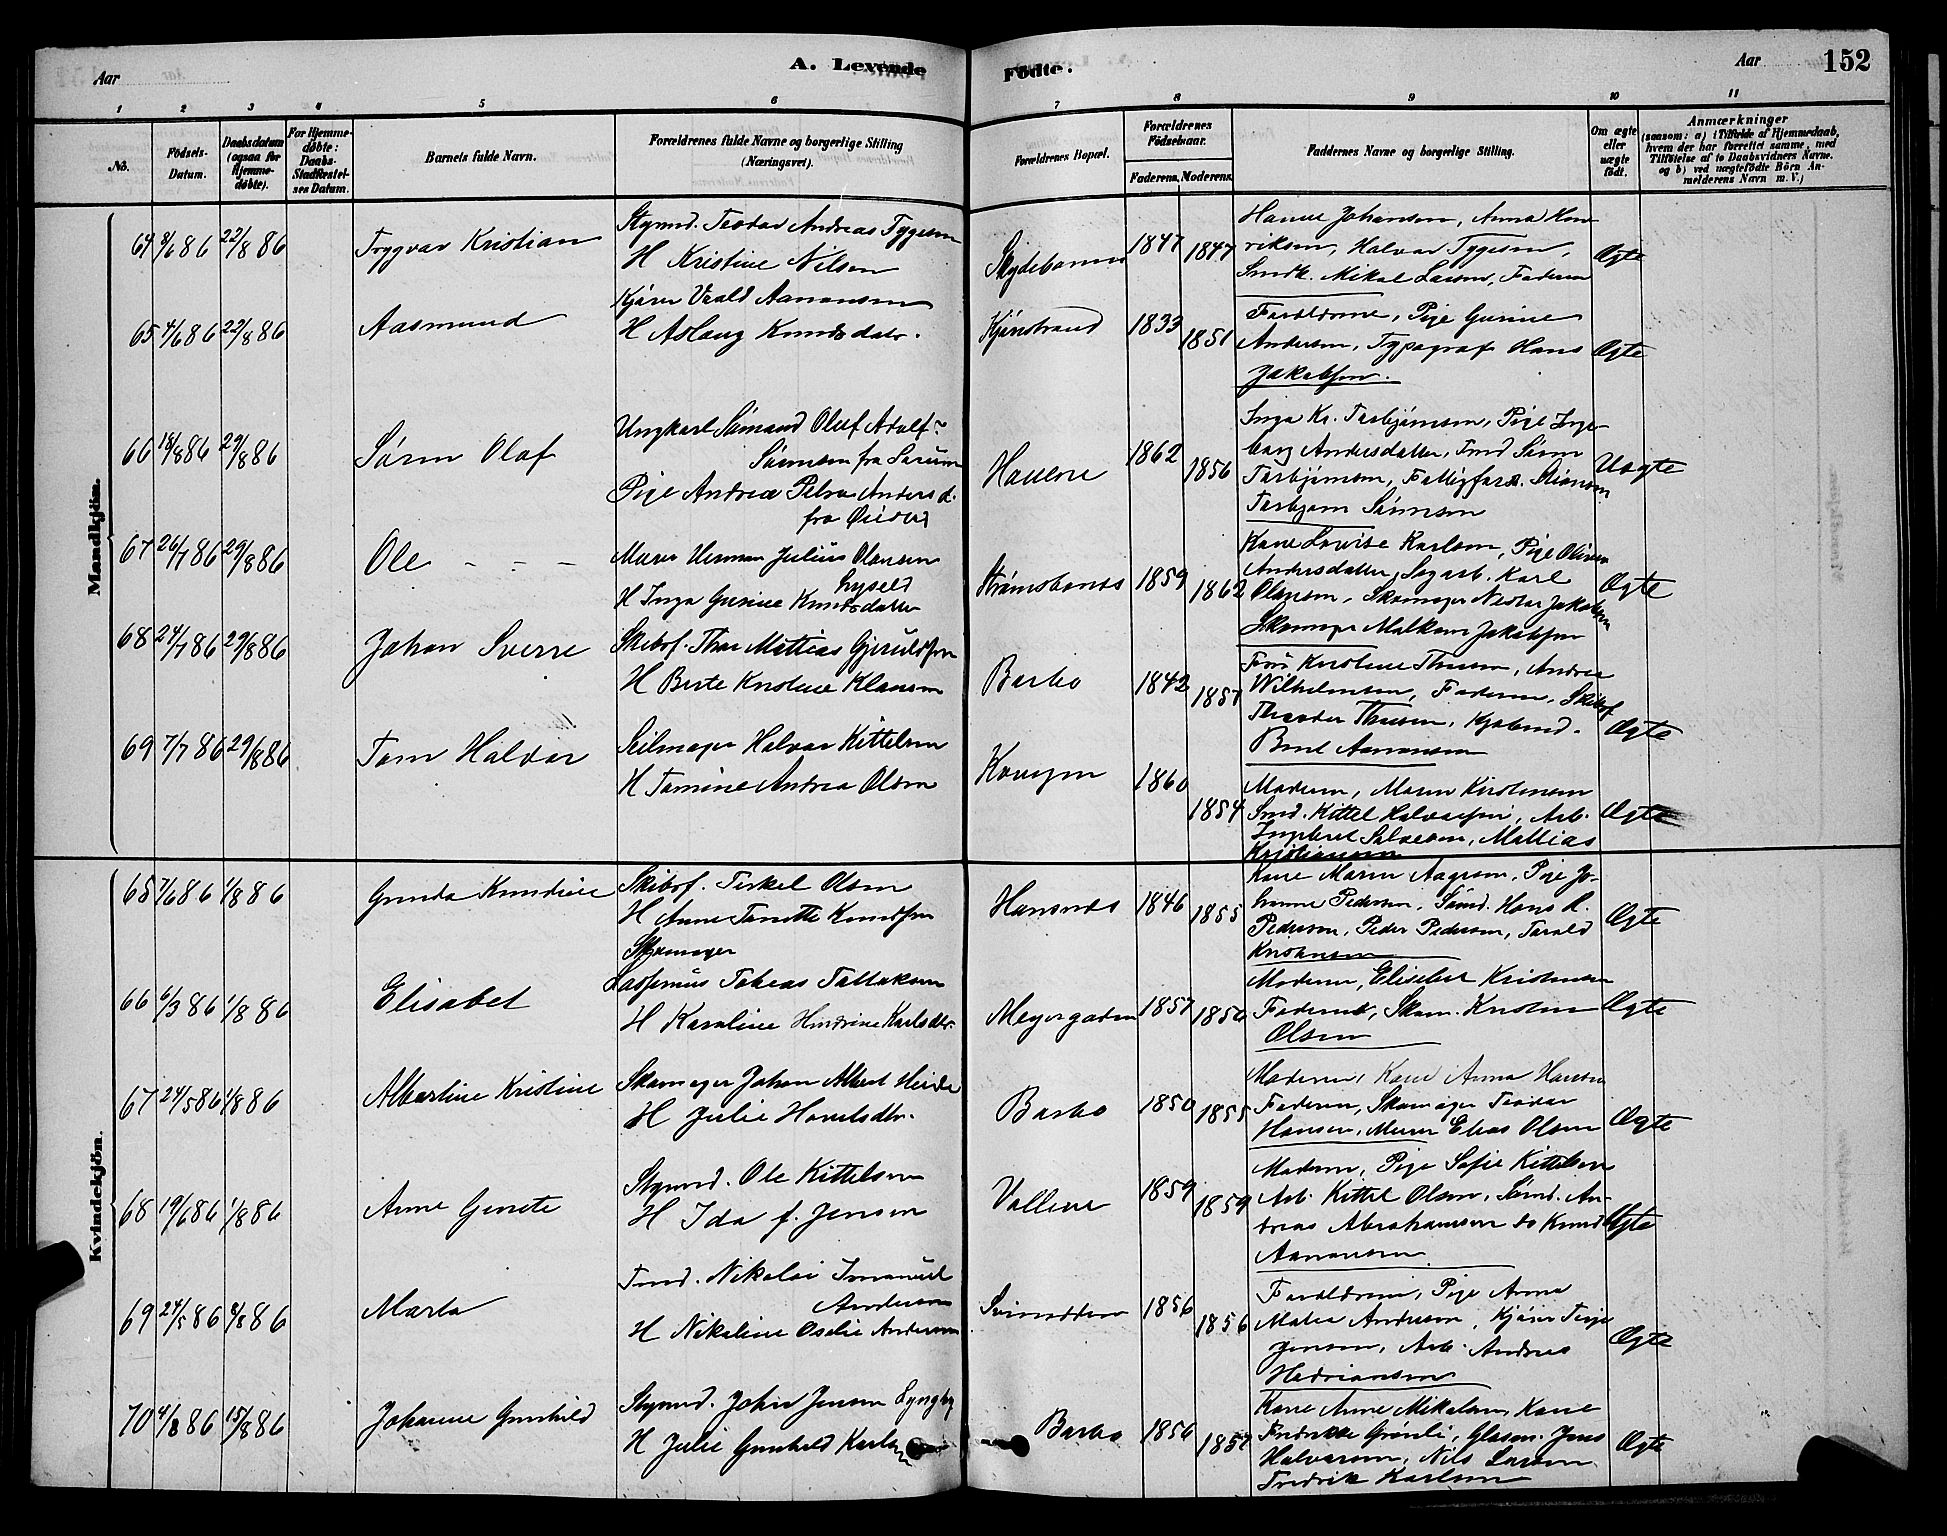 Aar
A. Levende
Fødte.
Aar
152
1 2 3 4 5 6 7 8 9 10 11
No.
Födsels-
Datum.
Daabsdatum
(ogsaa for
Hjemme-
döbte).
For Hjemme-
döbte:
Daabs-
Stadfæstel-
ses Datum.
Barnets fulde Navn.
Forældrenes fulde Navne og borgerlige Stilling
(Næringsvei).
Forældrenes Bopæl.
Forældrenes
Födselsaar.
Faderens. Moderens.
Faddernes Navne og borgerlige Stilling.
Om ægte
eller
uægte
födt.
Anmærkninger
(saasom: a) i Tilfælde af Hjemmedaab,
hvem der har forrettet samme, med
Tilföielse af to Daabsvidners Navne.
og b) ved uægtefödte Börn An-
melderens Navn m. V.)
Mandkjön.
64 9/6 86 22/8 86
Tryggvar Kristian
Teodor Andreas Tygesen
H Kristine Nilsen
1847 1847
Hanne Johansen, Anna Hen-
riksen, Halvar Tygesen,
Smdk. Mikal Larsen, Faderen
Ægte
65 4/6 86 22/8 86
Aasmund
Aanonsen
H Aslaug Knudsdatr.
Kjönstrand
1833 1851
Forældrene, Pige Gurine
Andersen, Typograf Hans
Jakobsen.
Ægte
66 18/8 86 29/8 86
Sören Olaf
Ungkarl Sömand Oluf Adolf
Sörensen fra
Pige Andrea Petra Anders d.
fra
Havene
1862 1856
Inga Kr. Torbjörnsen, Pige Inge-
borg Andersdatter, Smd Sören
Torbjörnsen,
Torbjörn Sörensen
Uægte
67 26/7 86 29/8 86
Ole - - -
Murer Herman Julius Olausen
H Inga Gurine Knudsdatter
Strömsbonæs
1859 1862
Kone Lovise Karlsen, Pige
Andersdatter, Karl
Olausen, Skomager Jakobsen
Skomager Jakobsen
Ægte
68 24/7 86 29/8 86
Johan Sverre
Skibsf. Mattias
H Berte Kristine Klausen
Barbo
1842 1857
Kristine Andrea
Wilhelmsen, Faderen, Skibsf.
Aanonsen
Ægte
69 7/7 86 29/8 86
Tom Halvor
Seilmager Halvor Kittelsen
H Tomine Andrea Olsen
1860 1854
Moderen, Maren Kristensen
Smd. Kittel Halvorsen, Arb.
Ingebret Salvesen, Mattias
Kristiansen
Ægte
Kvindekjön.
65 7/6 86 1/8 86
Gunda Knudine
Skibsf. Terkel Olsen
H Anne Tonette Knudsen
1846 1855
Kone Maren Aagesen, Pige Jo-
hanne Pedersen, Sömd. Hans R.
Pedersen, Peder Pedersen, Tarald
Kristensen
Ægte
66 6/3 86 1/8 86
Elisabet
Skomager
Tobias Tallaksen
H Karoline Hindrine Karlsdtr.
Meyergaden
1857 1850
Moderen, Elisebet Kristensen
Faderen, Skom. Kristen
Olsen
Ægte
67 24/5 86 1/8 86
Albertine Kristine
Skomager Johan Albert
H Julie
Barbo
1850 1855
Moderen, Kone Anna Hansen
Faderen, Skomager Teodor
Hansen, Murer Elias Olsen
Ægte
68 19/6 86 1/8 86
Anne
Styrmd. Ole Kittelsen
H Ida f. Jensen
Vollene
1859 1859
Moderen, Pige Sofie Kittelsen
Arb. Kittel Olsen, Sömd. An-
dreas Abrahamsen do Knud
Aanonsen
Ægte
69 24/5 86 8/8 86
Marta
Tmd. Nikolai Imanuel
Andersen
H Nikoline Oselie Andersen
1856 1856
Forældrene, Pige Anna
Andersen, Kjörer Terje
Jensen, Arb. Andreas
Hedriansen
Ægte
70 4/8 86 15/8 86
Johanne Gunhild
Styrmd. John Jensen Lyngby
H Julie Gunhild Karlsen
Barbo
1856 1857
Kone Anne Mikalsen, Kone
Fredrikke Grönli, Glasm. Jens
Halvorsen, Nils Larsen
Fredrik Karlsen
Ægte